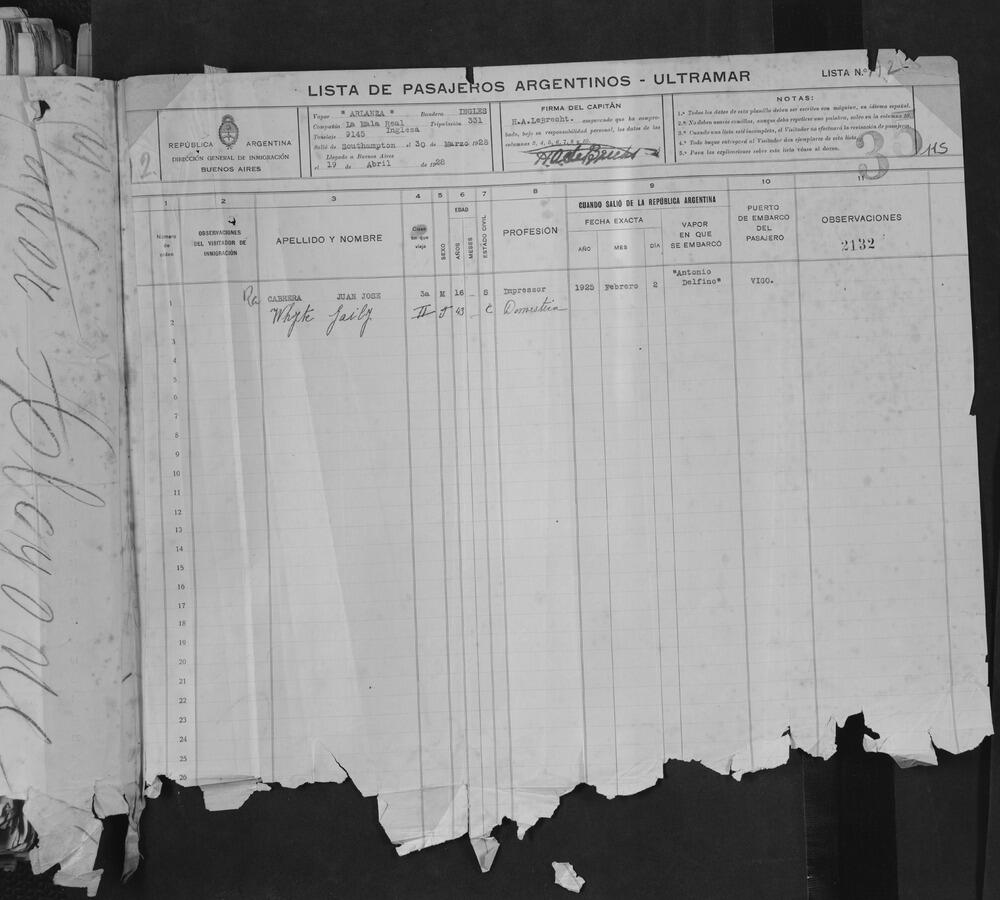 LISTA DE PASAJEROS ARGENTINOS - ULTRAMAR
LISTA N.º
2.
REPÚBLICA ARGENTINA
DIRECCIÓN GENERAL DE INMIGRACIÓN
BUENOS AIRES
Vapor " ARLANZA " Bandera INGLES
Compañía La Mala Real Inglesa Tripulación 331
Tonelaje 9145
Salió de Southampton el 30 de Marzo 1928
Llegado a Buenos Aires
el 19 de Abril de 1928
FIRMA DEL CAPITÁN
H.A.LeBrecht. asegurando que ha comprobado, bajo su responsabilidad personal, los datos de las
columnas 3, 4, 5, 6, 7, 8 y 10
NOTAS:
1.ª Todos los datos de esta planilla deben ser escritos con máquina, en idioma español.
2.ª No deben usarse comillas, aunque deba repetirse una palabra, salvo en la columna 10.
3.ª Cuando una lista esté incompleta, el Visitador no efectuará la revisación de pasajeros.
4.ª Todo buque entregará al Visitador dos ejemplares de esta lista.
5.ª Para las explicaciones sobre esta lista véase al dorso.
30
115
1 2 3 4 5 6 7 8 9 10 11
Número de orden
OBSERVACIONES DEL VISITADOR DE INMIGRACIÓN
APELLIDO Y NOMBRE
Clase en que viaja
SEXO
EDAD
AÑOS
MESES
ESTADO CIVIL
PROFESIÓN
CUANDO SALIÓ DE LA REPÚBLICA ARGENTINA
FECHA EXACTA
AÑO MES DÍA
VAPOR EN QUE SE EMBARCÓ
PUERTO DE EMBARCO DEL PASAJERO
OBSERVACIONES
2132
1 CABRERA JUAN JOSE 3a M 16 _ S Impressor 1925 Febrero 2 "Antonio Delfino" VIGO.
2 Whyte II F 43 _ C
3
4
5
6
7
8
9
10
11
12
13
14
15
16
17
18
19
20
21
22
23
24
25
26